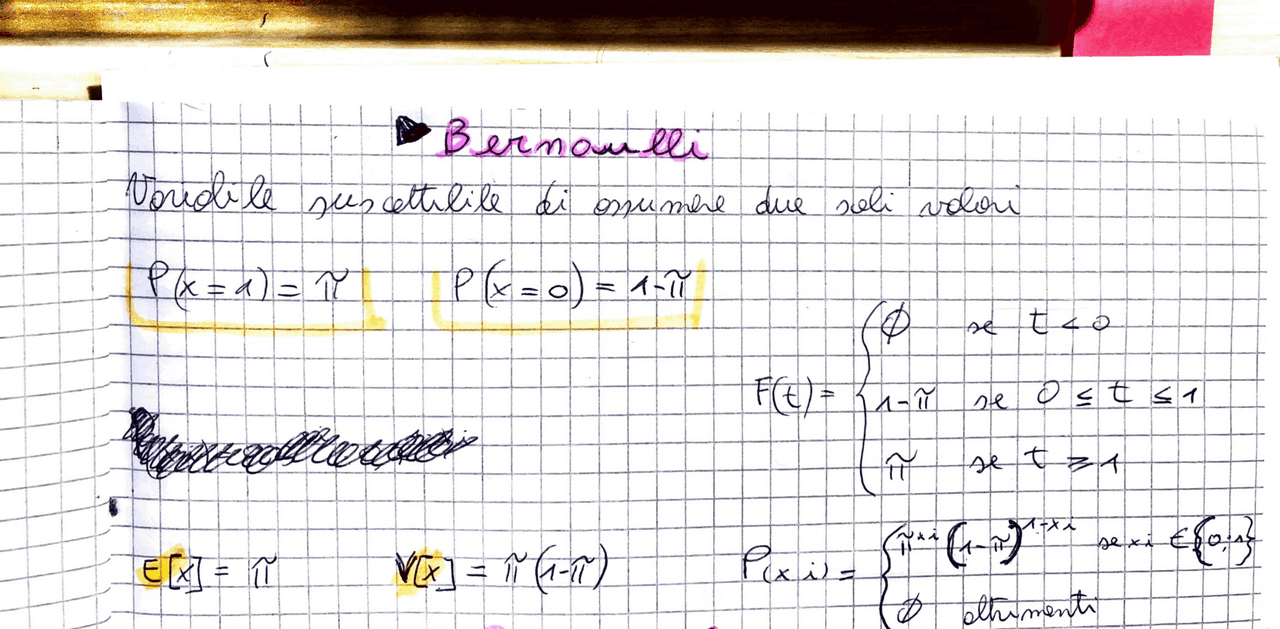 Bernoulli
Variabile suscettibile di assumere due soli valori
P(x=1) = π P(x=0) = 1-π
F(t) = { ∅ se t < 0
1-π se 0 ≤ t ≤ 1
π se t ≥ 1
E[x] = π V[x] = π(1-π)
P(xi) = { π^xi (1-π)^1-xi se xi ∈ {0;1}
∅ altrimenti